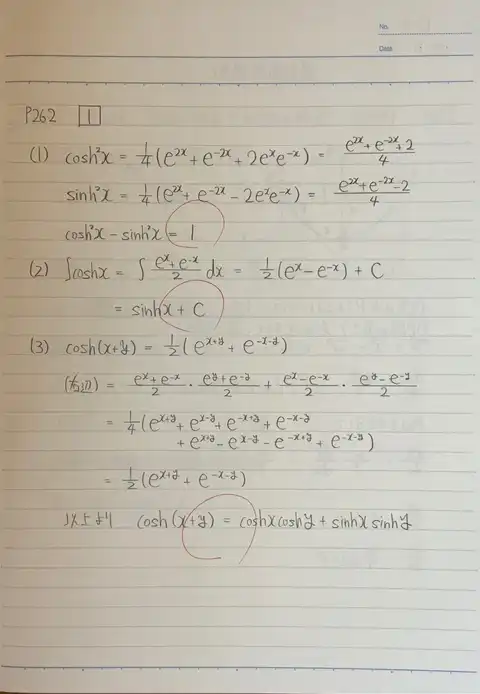 No.
Date
P262 1
(1) cosh²x = 1/4(e^{2x} + e^{-2x} + 2e^x e^{-x}) = (e^{2x} + e^{-2x} + 2)/4
sinh²x = 1/4(e^{2x} + e^{-2x} - 2e^x e^{-x}) = (e^{2x} + e^{-2x} - 2)/4
cosh²x - sinh²x = 1
(2) ∫coshx = ∫ (e^x + e^{-x})/2 dx = 1/2(e^x - e^{-x}) + C
= sinhx + C
(3) cosh(x+y) = 1/2(e^{x+y} + e^{-x-y})
(右辺) = (e^x + e^{-x})/2 · (e^y + e^{-y})/2 + (e^x - e^{-x})/2 · (e^y - e^{-y})/2
= 1/4(e^{x+y} + e^{x-y} + e^{-x+y} + e^{-x-y}
+ e^{x+y} - e^{x-y} - e^{-x+y} + e^{-x-y})
= 1/2(e^{x+y} + e^{-x-y})
以上より cosh(x+y) = coshx coshy + sinhx sinhy